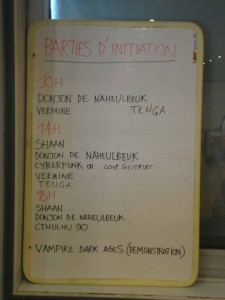 PARTIES D'INITIATION
10H
DONJON DE NAHEULBEUK
VERMINE TENGA
14H
SHAAN
DONJON DE NAHEULBEUK
CYBERPUNK ou
VERMINE
TENGA
18H
SHAAN
DONJON DE NAHEULBEUK
CTHULHU 90
• VAMPIRE DARK AGES (DEMONSTRATION)